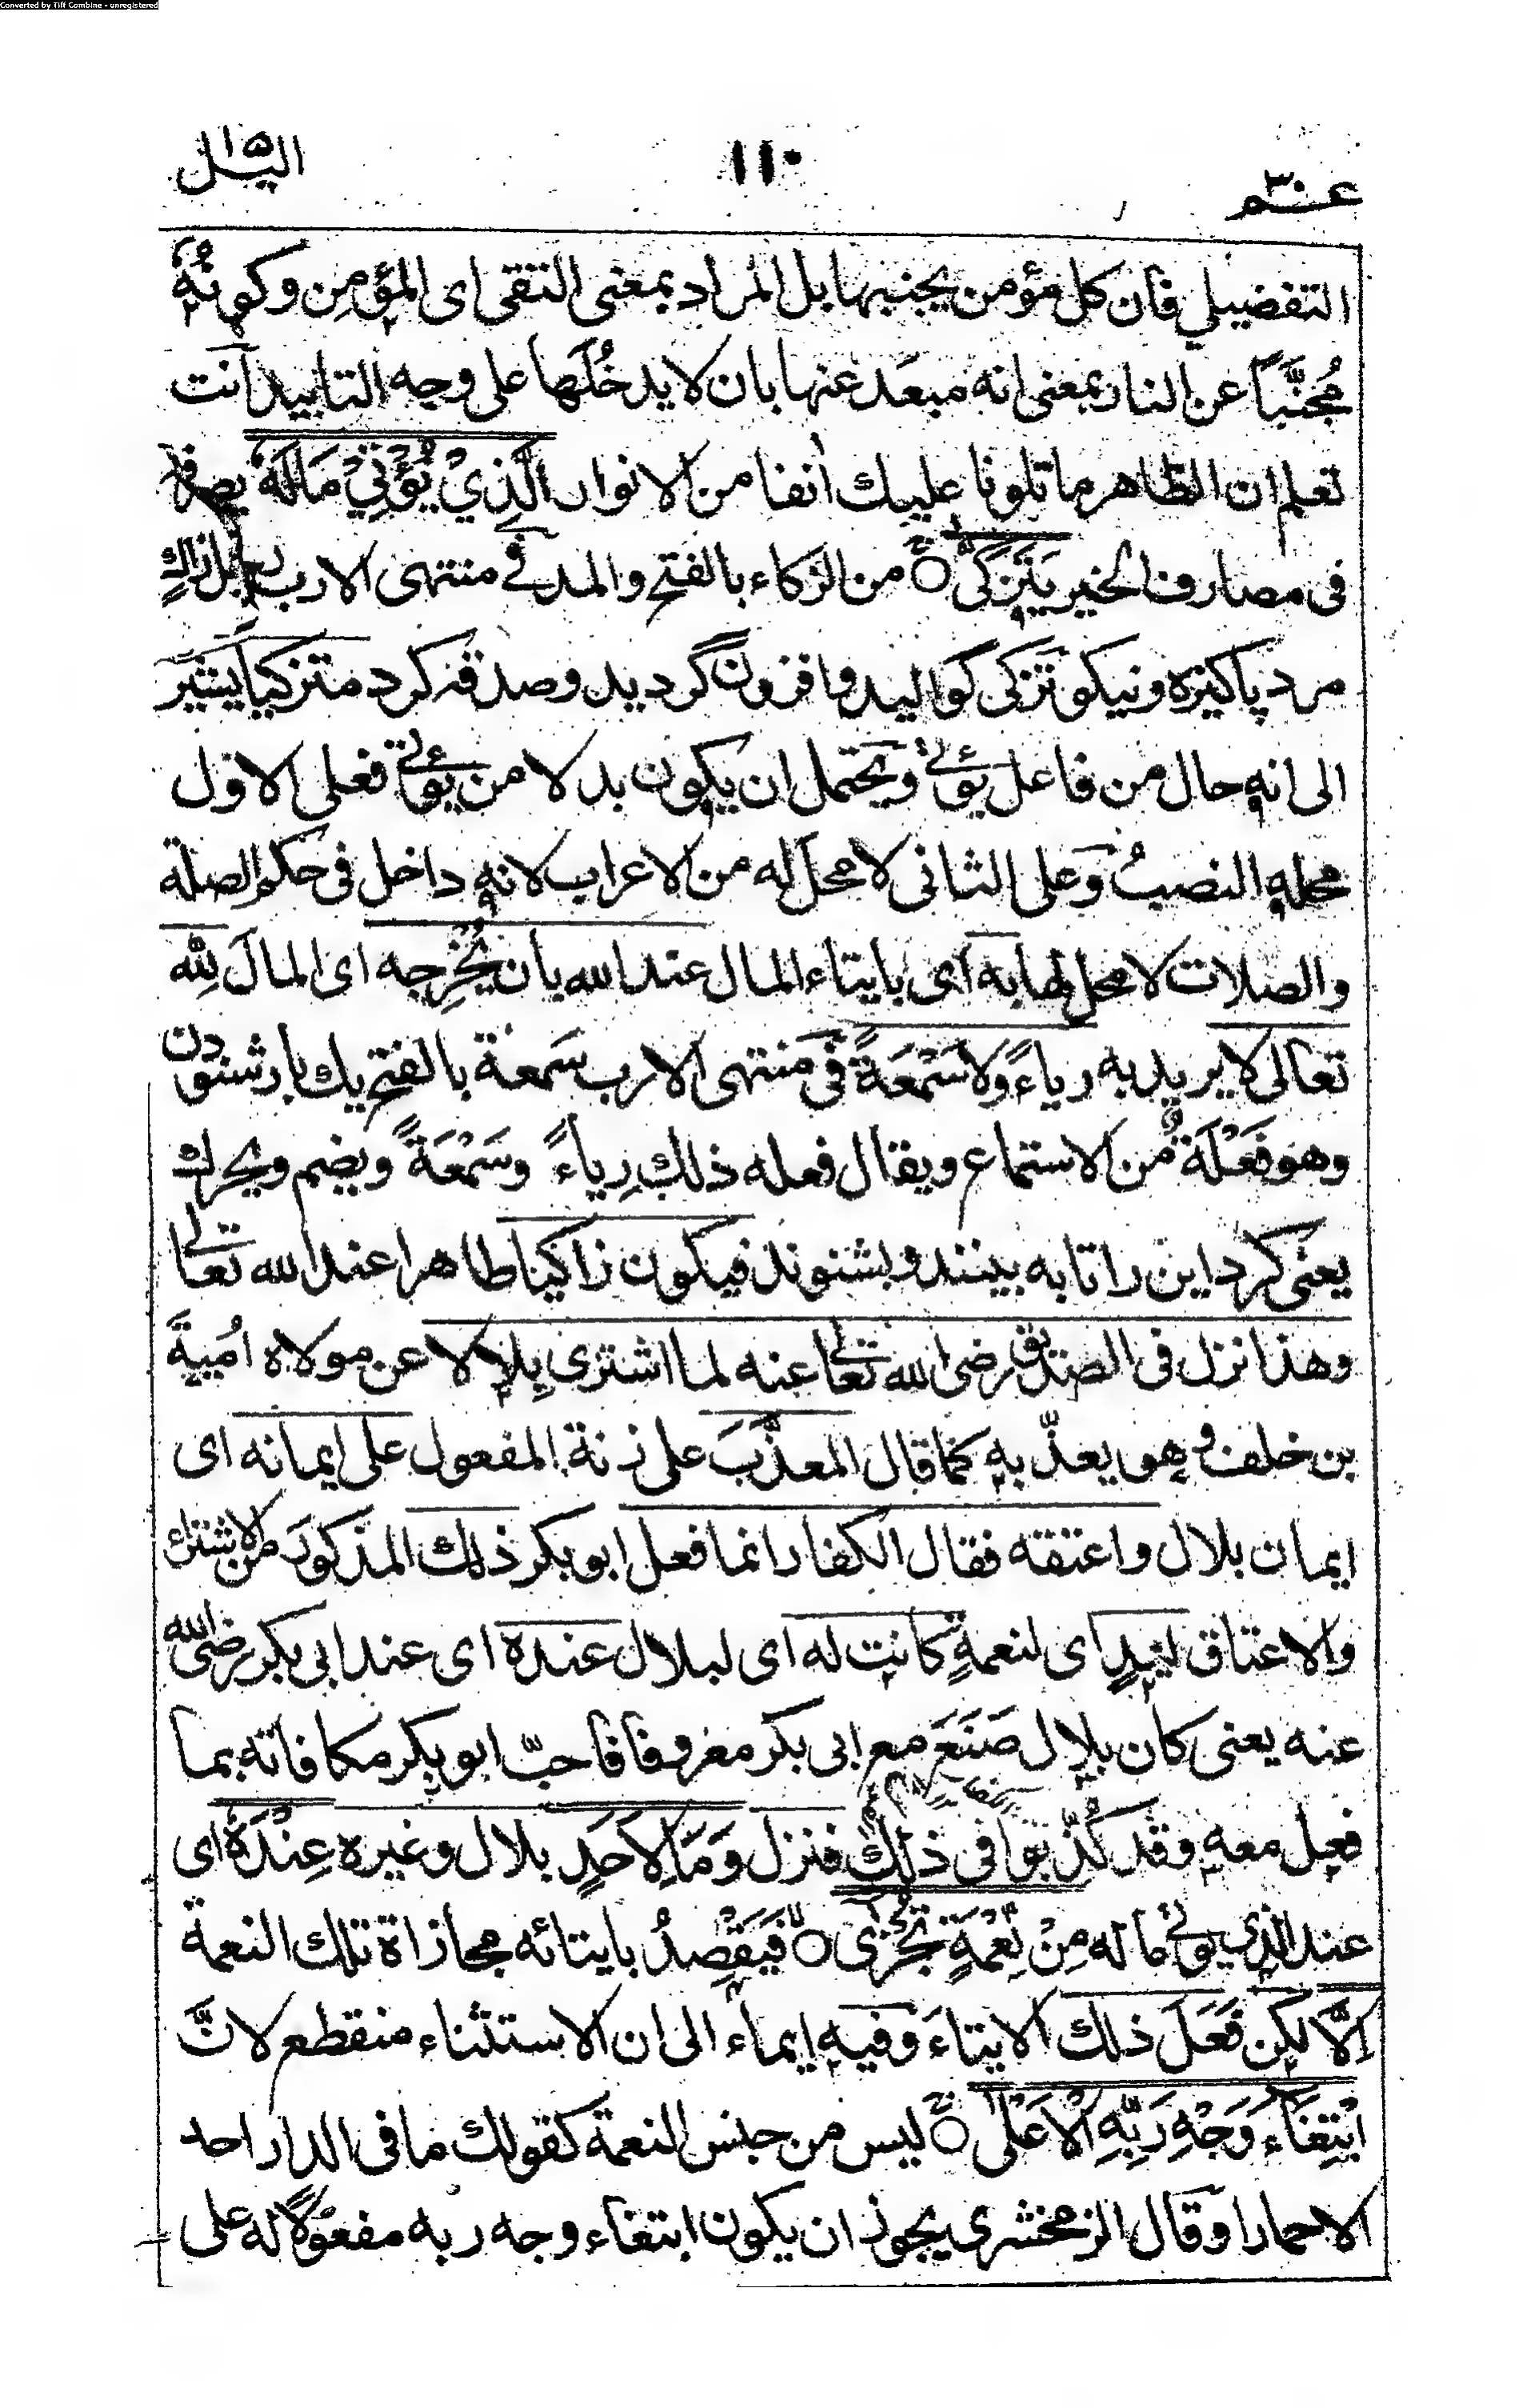 Converted by Tiff Combine - unregistered
عـم ٣٠
١١٠
اليل
التفضيلي فان كل مؤمن يجنبها بل المراد بمعنى التقى اى المؤمِن وكونُهٗ
مُجنَّباً عن النار بمعنى انه مبعَد عنها بان لا يدخُلَها على وجه التابيد انت
تعلم ان الظاهر ما تلونا عليك أنفا من الانوار الَّذِيْ يُؤْتِيْ مَالَهٗ يصرفه
فى مصارف الخير يَتَزَكّٰى من الزكاء بالفتح والمد فے منتهى الارب رجل زاكٍ
مرد پاكيزه ونيكو تزكى گواليد وافزون گرديد وصدقه كرد متزكياً يشير
الى انه حال من فاعل يؤتے ويحتمل ان يكون بدلا من يؤتے فعلى الاول
محله النصبُ وعلى الثانى لا محل له من الاعراب لانه داخل فى حكم الصلة
والصلات لا محل لها به اى بايتاء المال عند الله بان يُخْرِجه اى المالَ لِلّٰه
تعالى لا يريد به رياءً ولا سَمْعَةً فى منتهى الارب سَمعة بالفتح يك بار شنودن
وهو فَعْلَةٌ من الاستماع ويقال فعله ذلك رِياءً وسَمْعَةً ويضم ويحرك
يعنى كرد اين را تا به بينند وبشنوند فيكون زاكيا طاهرا عند الله تعالى
وهذا نزل فى الصديق رضى الله تعالى عنه لما اشترى بِلالا عن مولاه اُميةَ
بن خلف وهو يعذّبه كما قال المعذَّبَ على زنة المفعول على ايمانه اى
ايمان بلال واعتقه فقال الكفار انما فعل ابو بكر ذلك المذكورَ من الاشتراء
والاعتاق ليدٍ اى لنعمةٍ كانت له اى لبلال عنده اى عند ابى بكر رضى الله
عنه يعنى كان بلال صَنَعَ مع ابى بكر معروفا فاحبّ ابو بكر مكافاته بما
فعل معه وقد كُذّبوا فى ذلك فنزل وَمَا لِاَحَدٍ بلال وغيره عِنْدَهٗ اى
عند الذى يؤتے ماله مِنْ نِعْمَةٍ تُجْزٰى فَيَقْصِدُ بايتائه مجازاة تلك النعمة
اِلَّا لكن فَعَلَ ذلك الايتاءَ وفيه ايماء الى ان الاستثناء منقطع لانَّ
ابْتِغَآءَ وَجْهِ رَبِّهِ الْاَعْلٰى ليس من جنس النعمة كقولك ما فى الدار احد
الا حمارا وقال الزمخشرى يجوز ان يكون ابتغاء وجه ربه مفعولاً له على